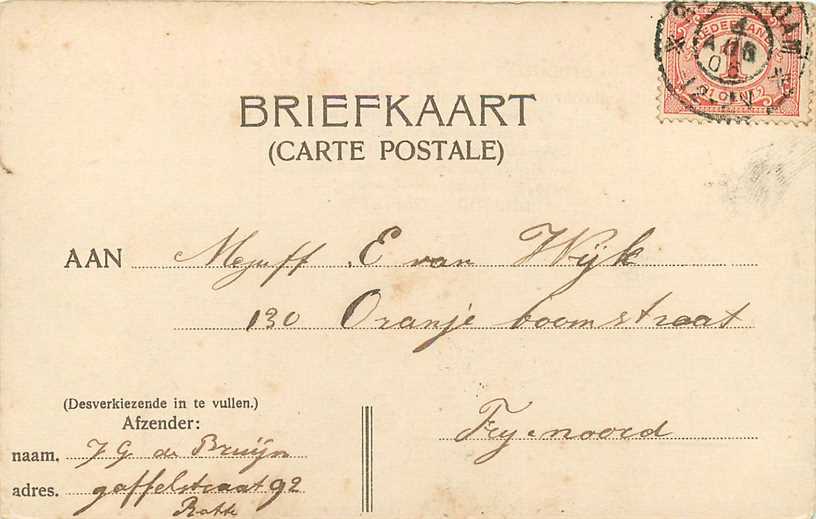 BRIEFKAART
(CARTE POSTALE)
NEDERLAND
AAN Mejuff. E van Wijk
130 Oranje boomstraat
Feyenoord
(Desverkiezende in te vullen.)
Afzender:
naam. J G de Bruijn
adres. gaffelstraat 92
Rotte